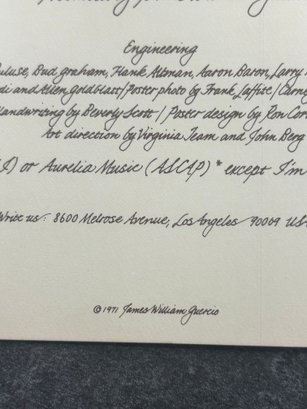 Engineering
Bud Graham, Hank Altman, Aaron Baron, Larry
and Allen Goldblatt / Poster photo by Frank Laffite / Carne
Handwriting by Beverly Scott / Poster design by Ron Cor
Art direction by Virginia Team and John Berg
or Aurelia Music (ASCAP) * except I'm
Write us: 8600 Melrose Avenue, Los Angeles 90069 US
© 1971 James William Guercio